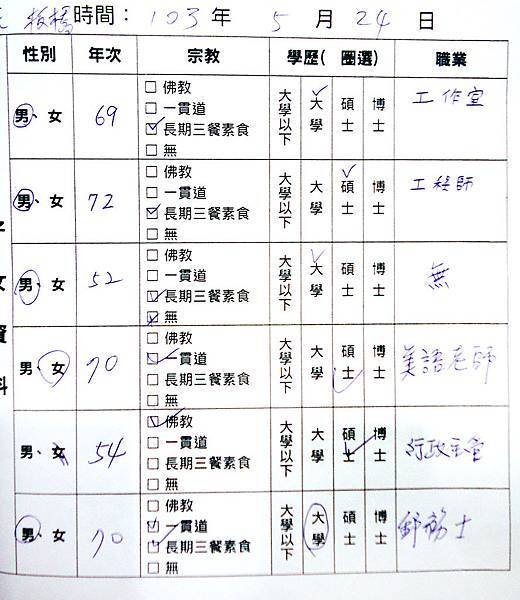 板橋 時間： 103 年 5 月 24 日
性別 年次 宗教 學歷( 圈選) 職業
男、女 69 □ 佛教 大學以下 大學 碩士 博士 工作室
□ 一貫道
☑ 長期三餐素食
□ 無
男、女 72 □ 佛教 大學以下 大學 碩士 博士 工程師
□ 一貫道
☑ 長期三餐素食
□ 無
男、女 52 □ 佛教 大學以下 大學 碩士 博士 無
□ 一貫道
☑ 長期三餐素食
☑ 無
男、女 70 □ 佛教 大學以下 大學 碩士 博士 美語老師
☑ 一貫道
□ 長期三餐素食
□ 無
男、女 54 ☑ 佛教 大學以下 大學 碩士 博士 行政主管
□ 一貫道
□ 長期三餐素食
□ 無
男、女 70 □ 佛教 大學以下 大學 碩士 博士 士
☑ 一貫道
☑ 長期三餐素食
□ 無
女
資
料